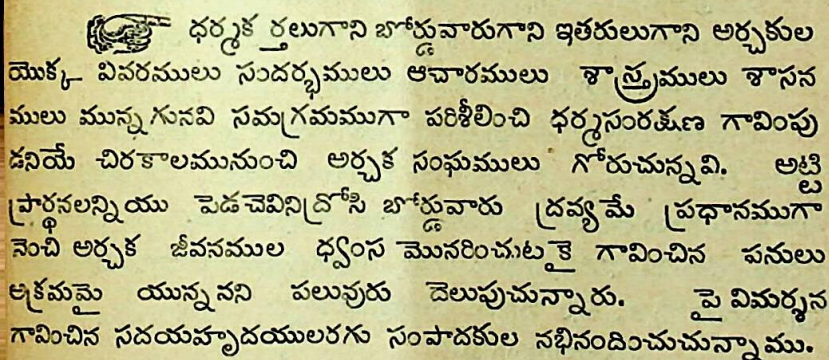 ధర్మక ర్తలుగాని బోర్డువారుగాని ఇతరులుగాని అర్చకుల
యొక్క వివరములు సందర్భములు ఆచారములు శాస్త్రములు శాసన
ములు మున్నగునవి సమగ్రమముగా పరిశీలించి ధర్మసంరక్షణ గావింపు
డనియే చిరకాలమునుంచి అర్చక సంఘములు గోరుచున్నవి. అట్టి
ప్రార్థనలన్నియు పెడచెవినిద్రోసి బోర్డువారు ద్రవ్యమే ప్రధానముగా
నెంచి అర్చక జీవనముల ధ్వంస మొనరించుటకై గావించిన పనులు
అక్రమమై యున్ననని పలువురు దెలుపుచున్నారు. పై విమర్శన
గావించిన సదయహృదయులరగు సంపాదకుల నభినందించుచున్నాము.